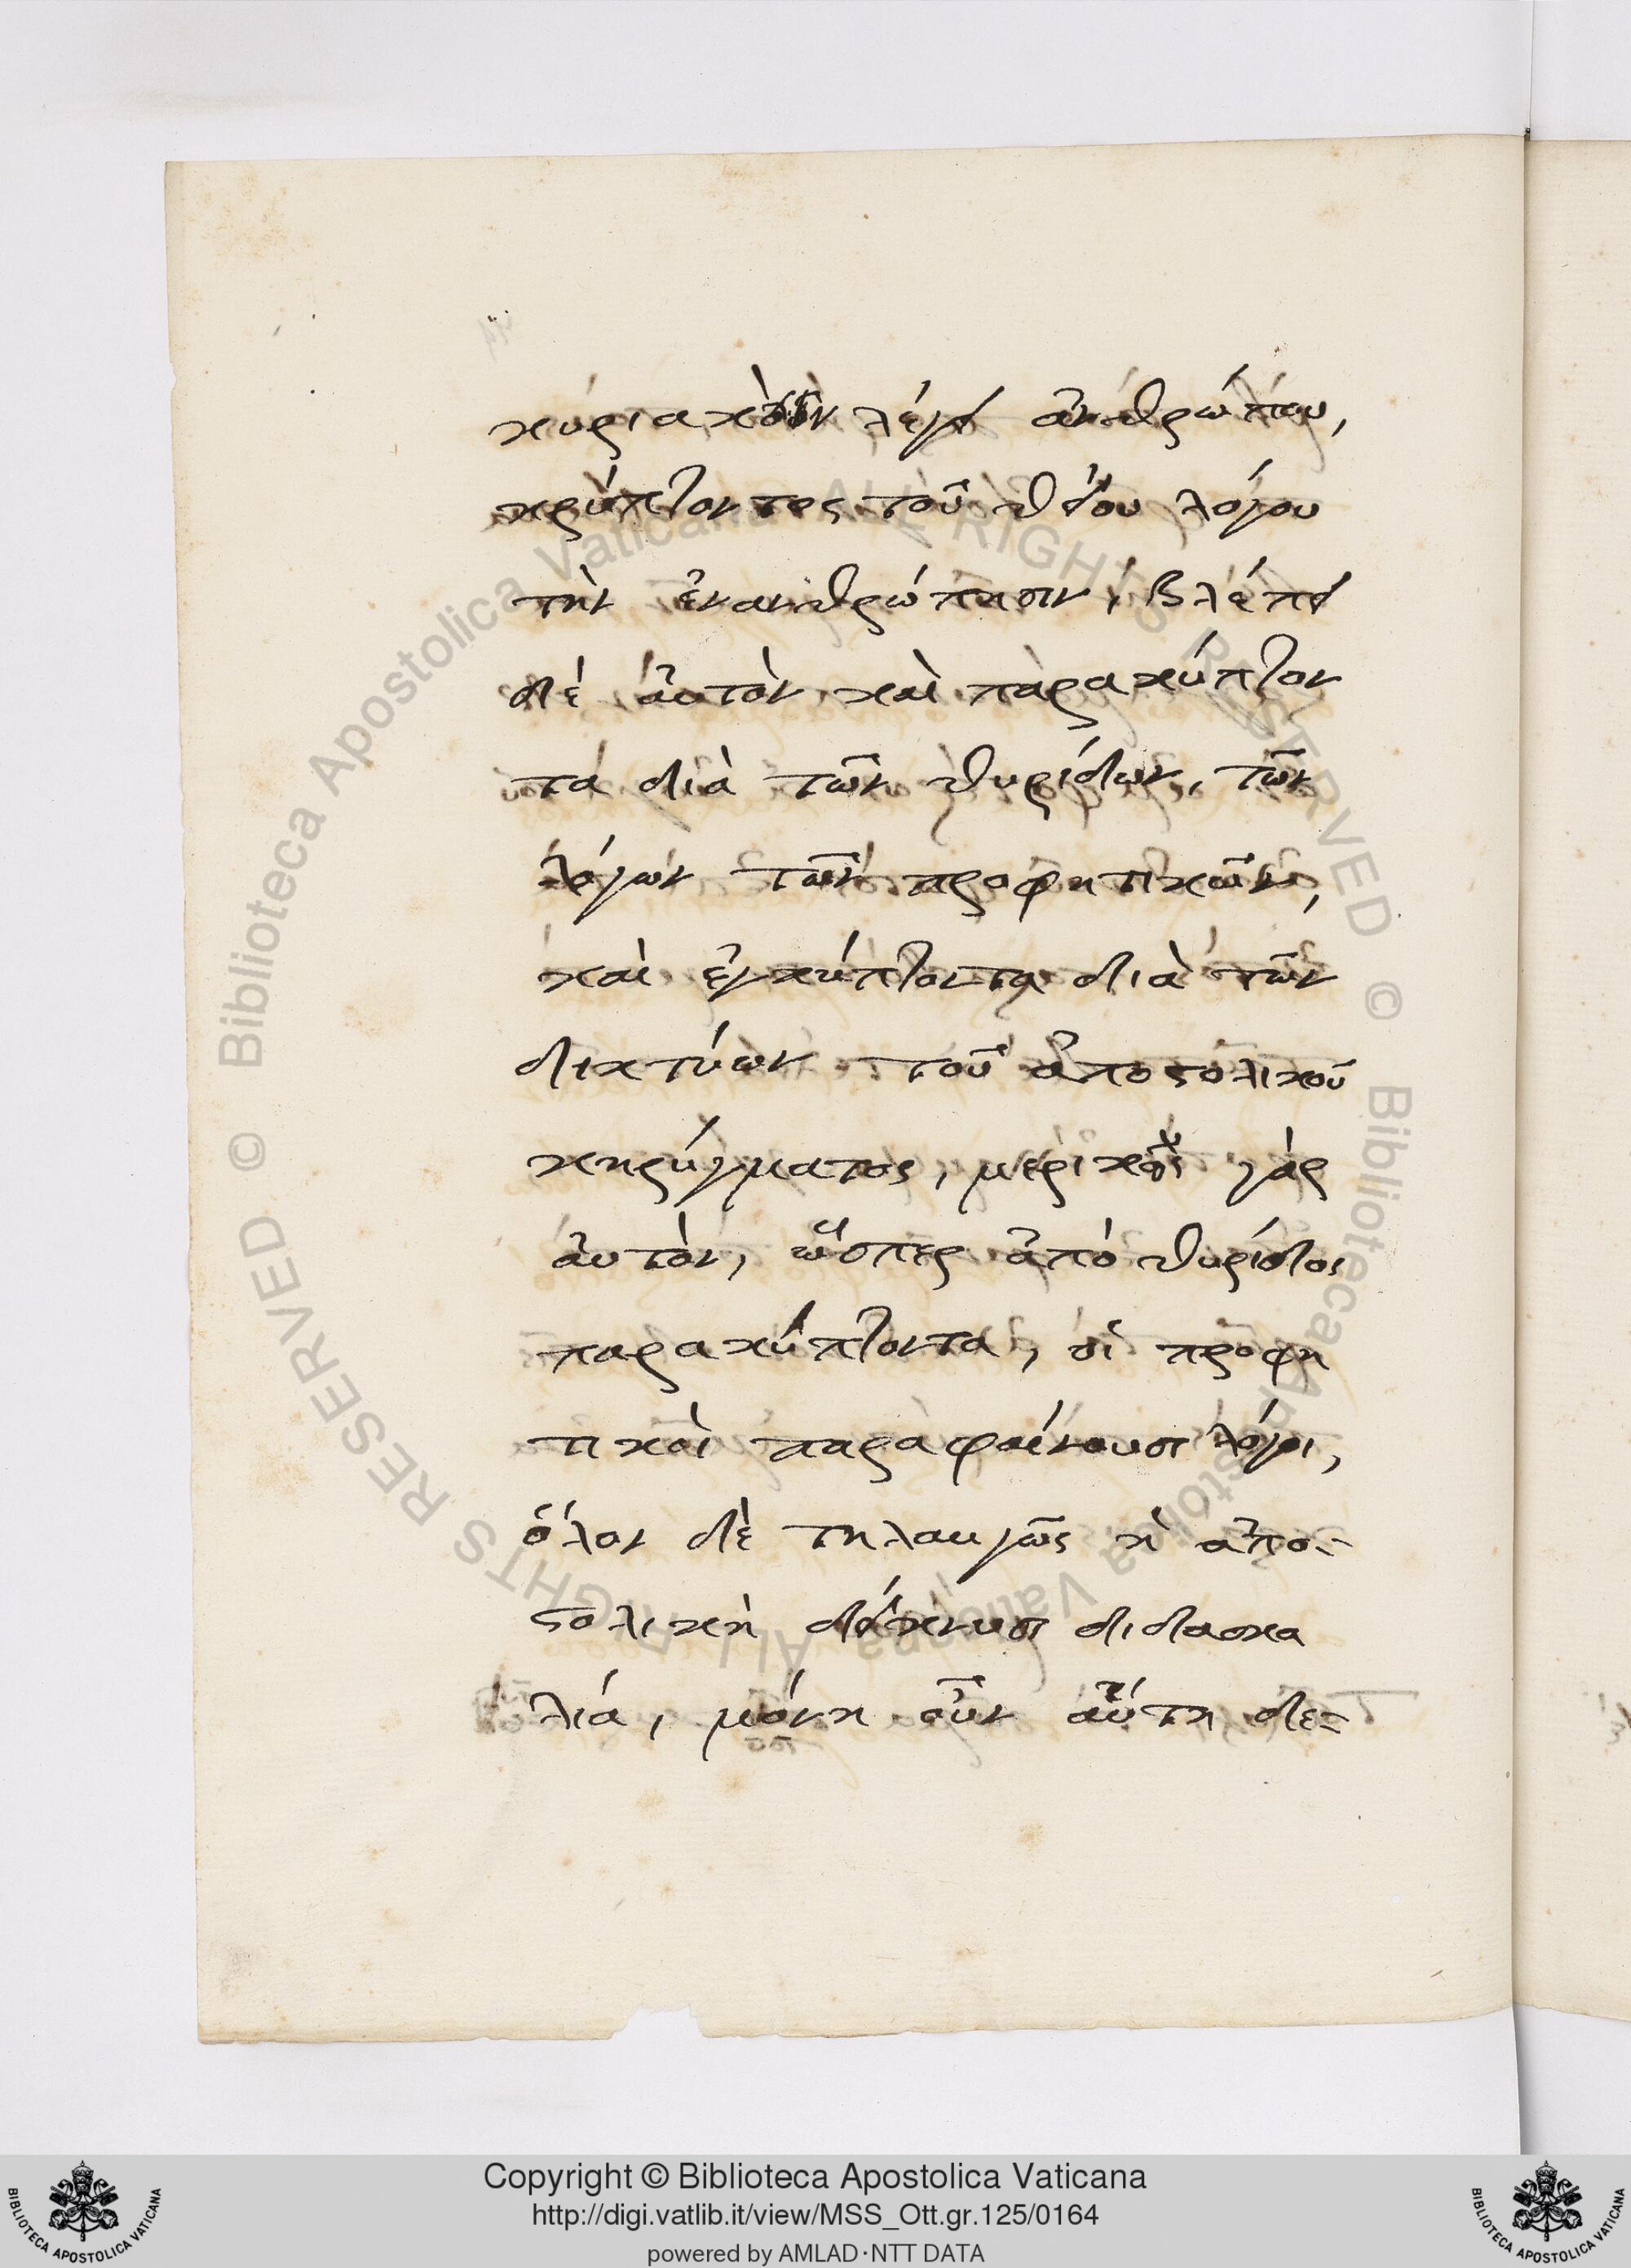 κυριακὸν λέγει ἀνθρώπου,
κρύπτοντος τοῦ θείου λόγου
τὴν ἐνανθρώπησιν, βλέπει
δὲ ἀυτὸν καὶ παρακύπτον
τα διὰ τῶν θυρίδων, τῶν
λόγων τῶν προφητικῶν,
καὶ ἐγκύπτοντα διὰ τῶν
δικτύων τοῦ ἀποστολικοῦ
κηρύγματος, μερικῶς γὰρ
ἀυτὸν, ὥσπερ ἀπὸ θυρίδος
παρακύπτοντα, οἱ προφη
τικοὶ παραφαίνουσι λόγοι,
ὅλον δὲ τηλαυγῶς ἡ ἀπο-
στολικὴ δείκνυσι διδασκα
λιά, μόνη οὖν ἀύτη δε-
© Biblioteca Apostolica Vaticana ALL RIGHTS RESERVED © Biblioteca Apostolica Vaticana ALL RIGHTS RESERVED
Copyright © Biblioteca Apostolica Vaticana
http://digi.vatlib.it/view/MSS_Ott.gr.125/0164
powered by AMLAD·NTT DATA
BIBLIOTECA APOSTOLICA VATICANA
BIBLIOTECA APOSTOLICA VATICANA